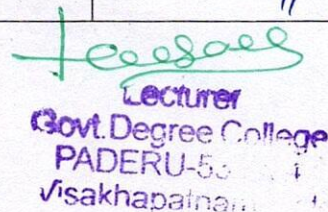 Lecturer
Govt. Degree College
PADERU-53
Visakhapatnam